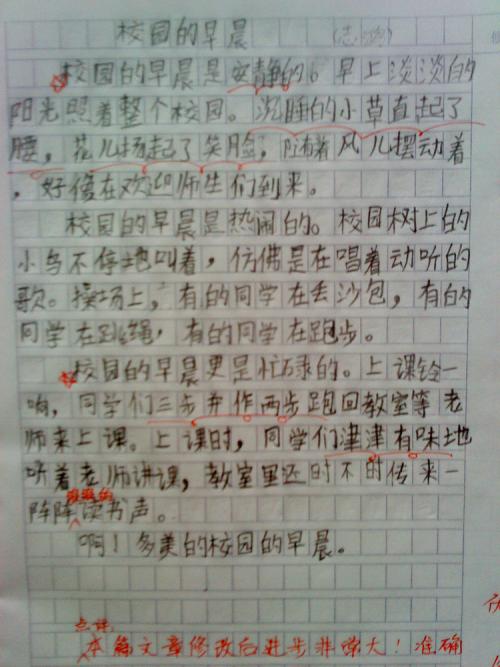 校园的早晨
校园的早晨是安静的。早上淡淡的
阳光照着整个校园。沉睡的小草直起了
腰，花儿扬起了笑脸，随着风儿摆动着
，好像在欢迎师生们到来。
校园的早晨是热闹的。校园树上的
小鸟不停地叫着，仿佛是在唱着动听的
歌。操场上，有的同学在丢沙包，有的
同学在跳绳，有的同学在跑步。
校园的早晨更是忙碌的。上课铃一
响，同学们三步并作两步跑回教室等老
师来上课。上课时，同学们津津有味地
听着老师讲课，教室里还时不时传来一
阵阵读书声。
啊！多美的校园的早晨。
点评
本篇文章修改后进步非常大！准确